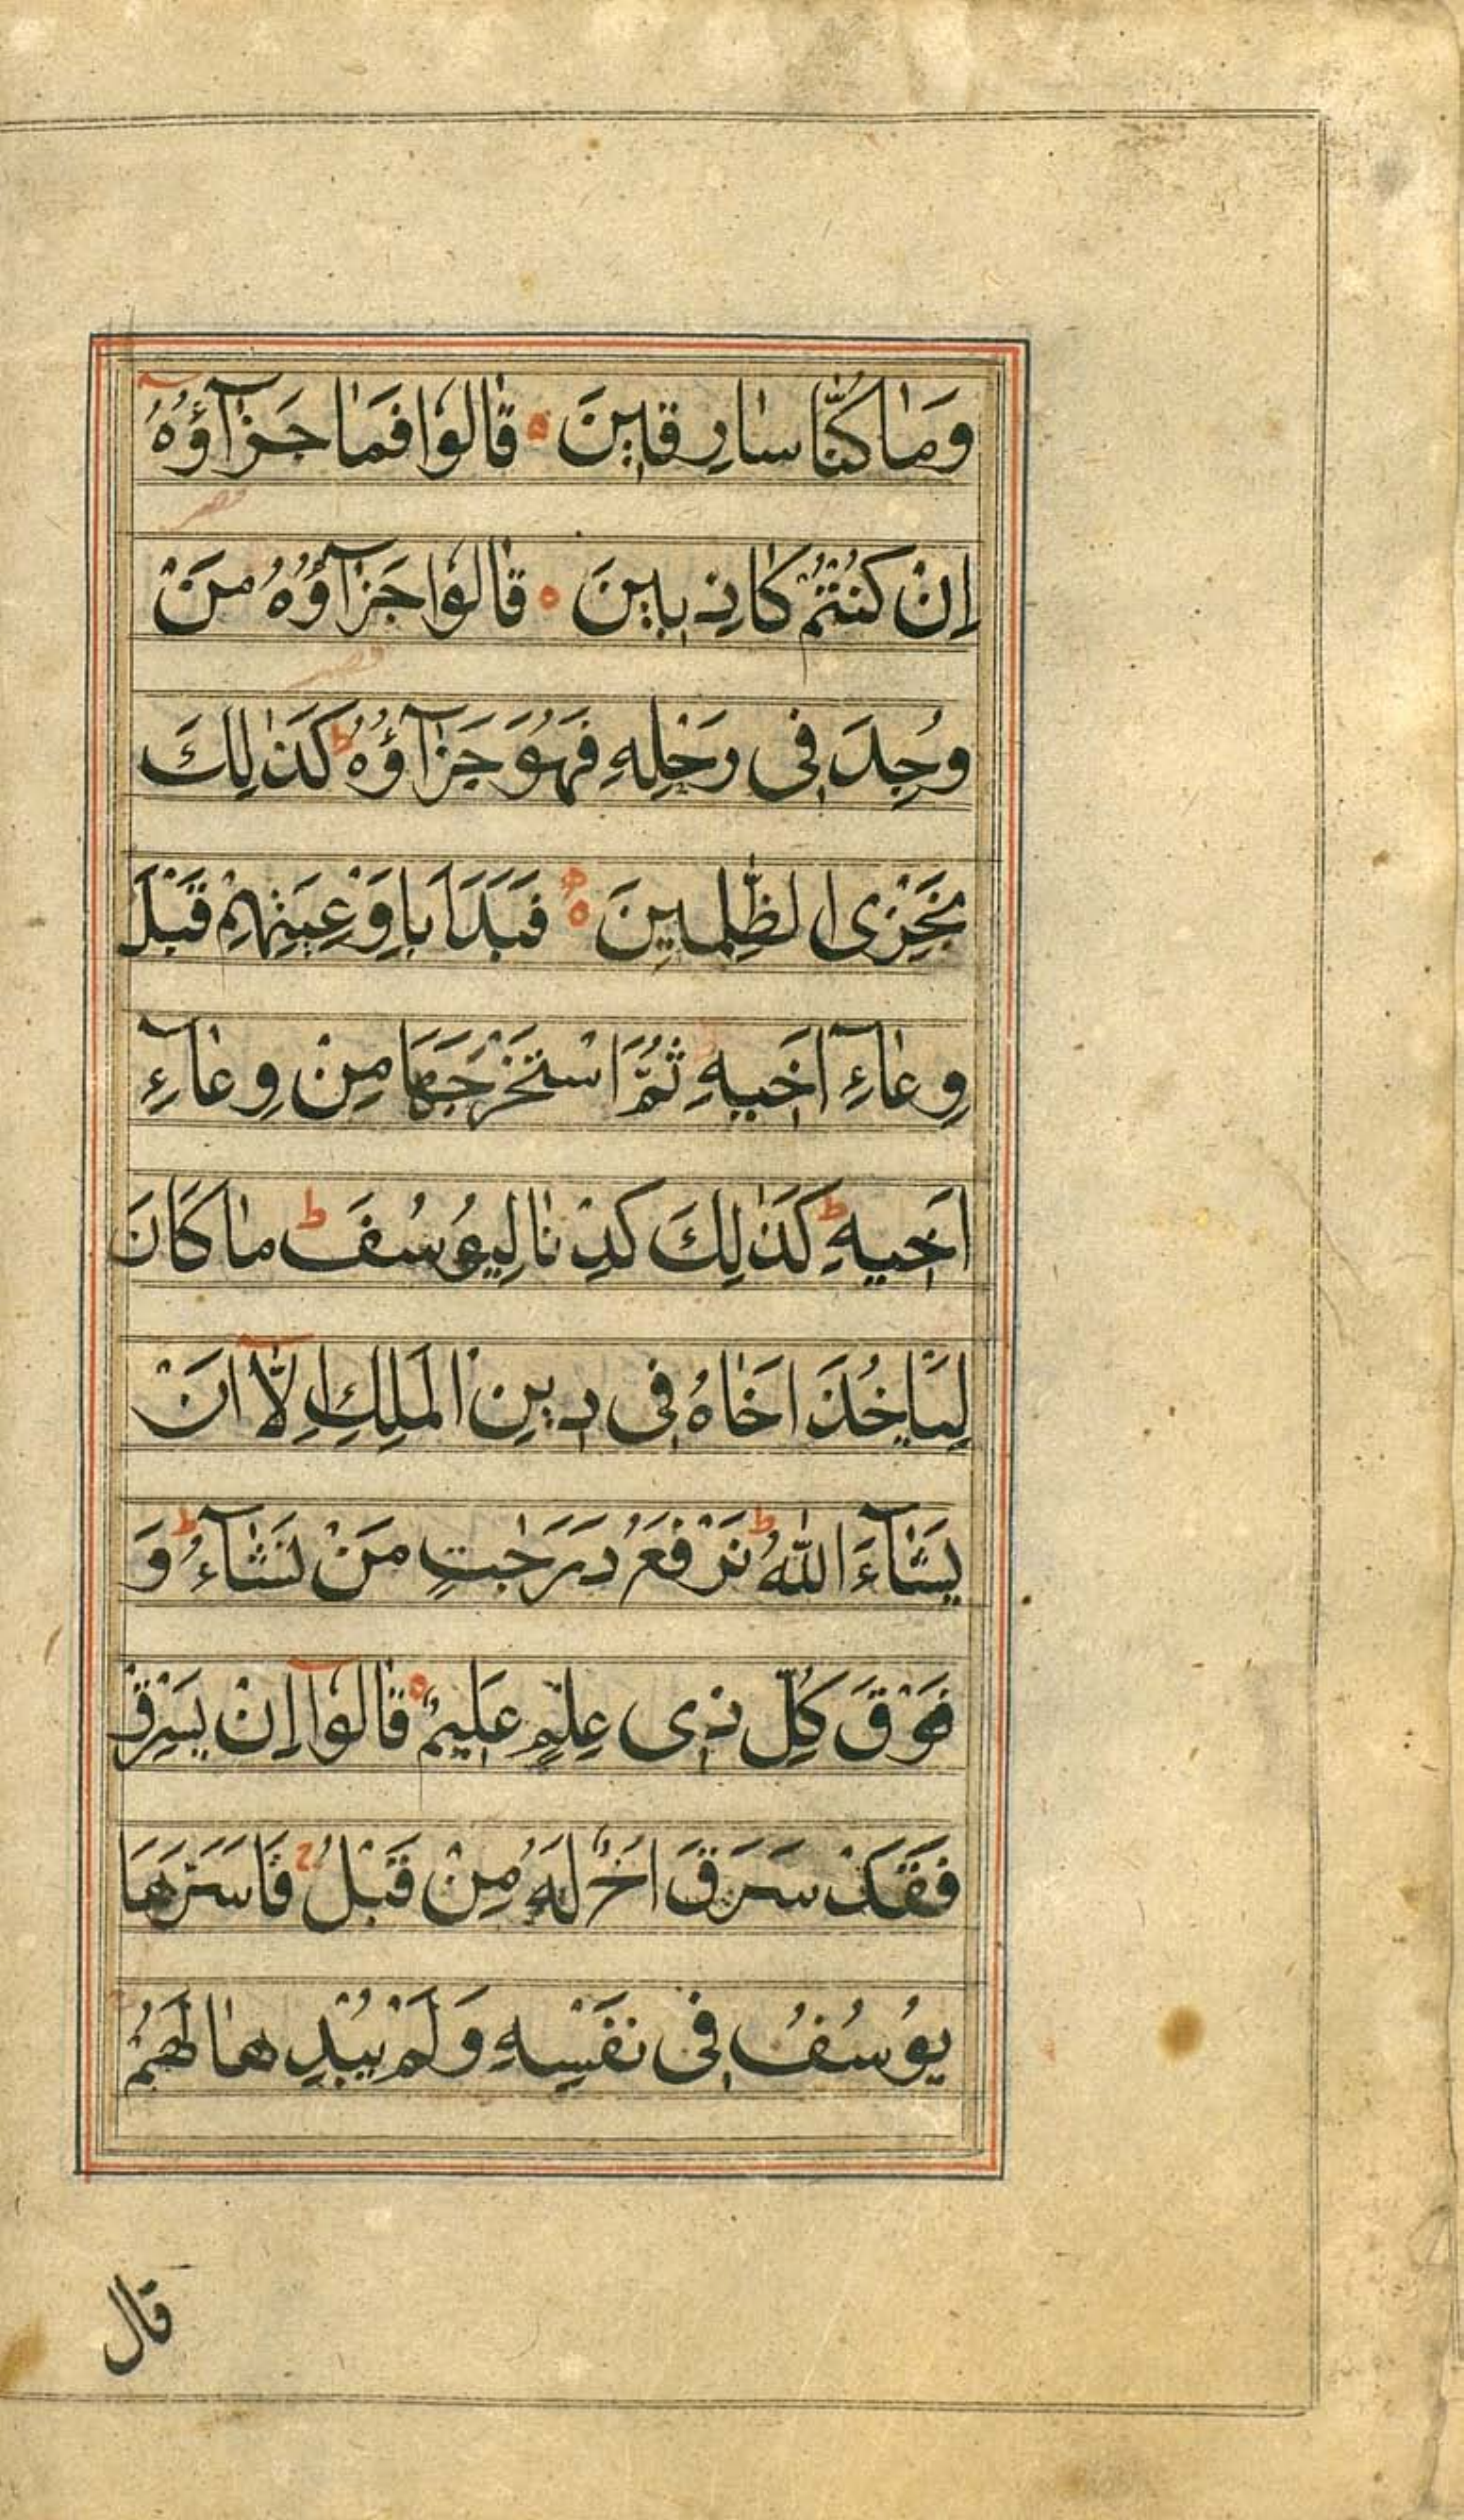 وَمَا كُنَّا سَارِقِينَ ۝ قَالُوا فَمَا جَزَآؤُهُ
اِنْ كُنْتُمْ كَاذِبِينَ ۝ قَالُوا جَزَآؤُهُ مَنْ
وُجِدَ فِى رَحْلِهِ فَهُوَ جَزَآؤُهُ ط كَذٰلِكَ
نَجْزِى الظّٰلِمِينَ ۝ فَبَدَاَ بِاَوْعِيَتِهِمْ قَبْلَ
وِعَآءِ اَخِيهِ ثُمَّ اسْتَخْرَجَهَا مِنْ وِعَآءِ
اَخِيهِ ط كَذٰلِكَ كِدْنَا لِيُوسُفَ ط مَا كَانَ
لِيَاْخُذَ اَخَاهُ فِى دِينِ الْمَلِكِ اِلَّآ اَنْ
يَشَآءَ اللّٰهُ ط نَرْفَعُ دَرَجٰتٍ مَنْ نَشَآءُ ط وَ
فَوْقَ كُلِّ ذِى عِلْمٍ عَلِيمٌ ۝ قَالُوآ اِنْ يَسْرِقْ
فَقَدْ سَرَقَ اَخٌ لَهُ مِنْ قَبْلُ ج فَاَسَرَّهَا
يُوسُفُ فِى نَفْسِهِ وَلَمْ يُبْدِهَا لَهُمْ
قال